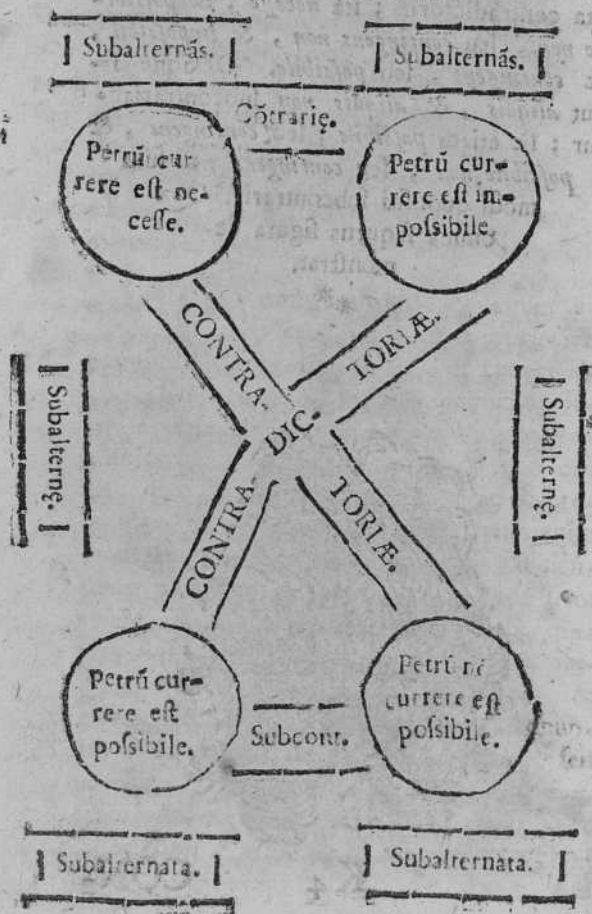 Subalternãs. Subalternãs.
Cõtrarię.
Petrũ cur-
rere est ne-
cesse.
Petrũ cur-
rere est im-
possibile.
CONTRA-
TORIÆ.
DIC.
CONTRA-
TORIÆ.
Subalternę.
Subalternę.
Petrũ cur-
rere est
possibile.
Subcont.
Petrũ
currere est
possibile.
Subalternata. Subalternata.